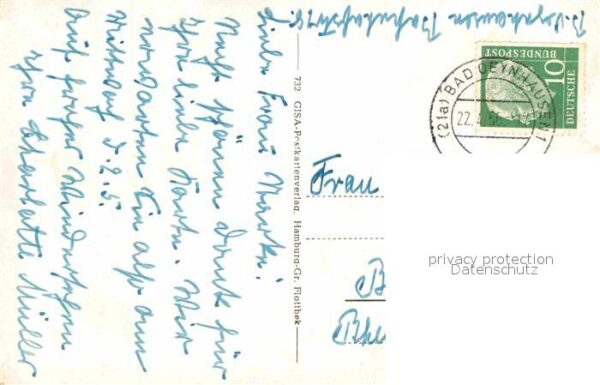 B. Oeynhausen Bahnhofstr.
Liebe Frau
Recht schönen Dank für
Ihre liebe Karte. Wir
erwarten Sie also am
Mittwoch d. 2.5.
Auf frohes Wiedersehen
Ihre Charlotte Müller
732 GISA-Postkartenverlag, Hamburg-Gr. Flottbek
10
DEUTSCHE
BUNDESPOST
(21a) BAD OEYNHAUSEN 1
22.
Frau
privacy protection
Datenschutz